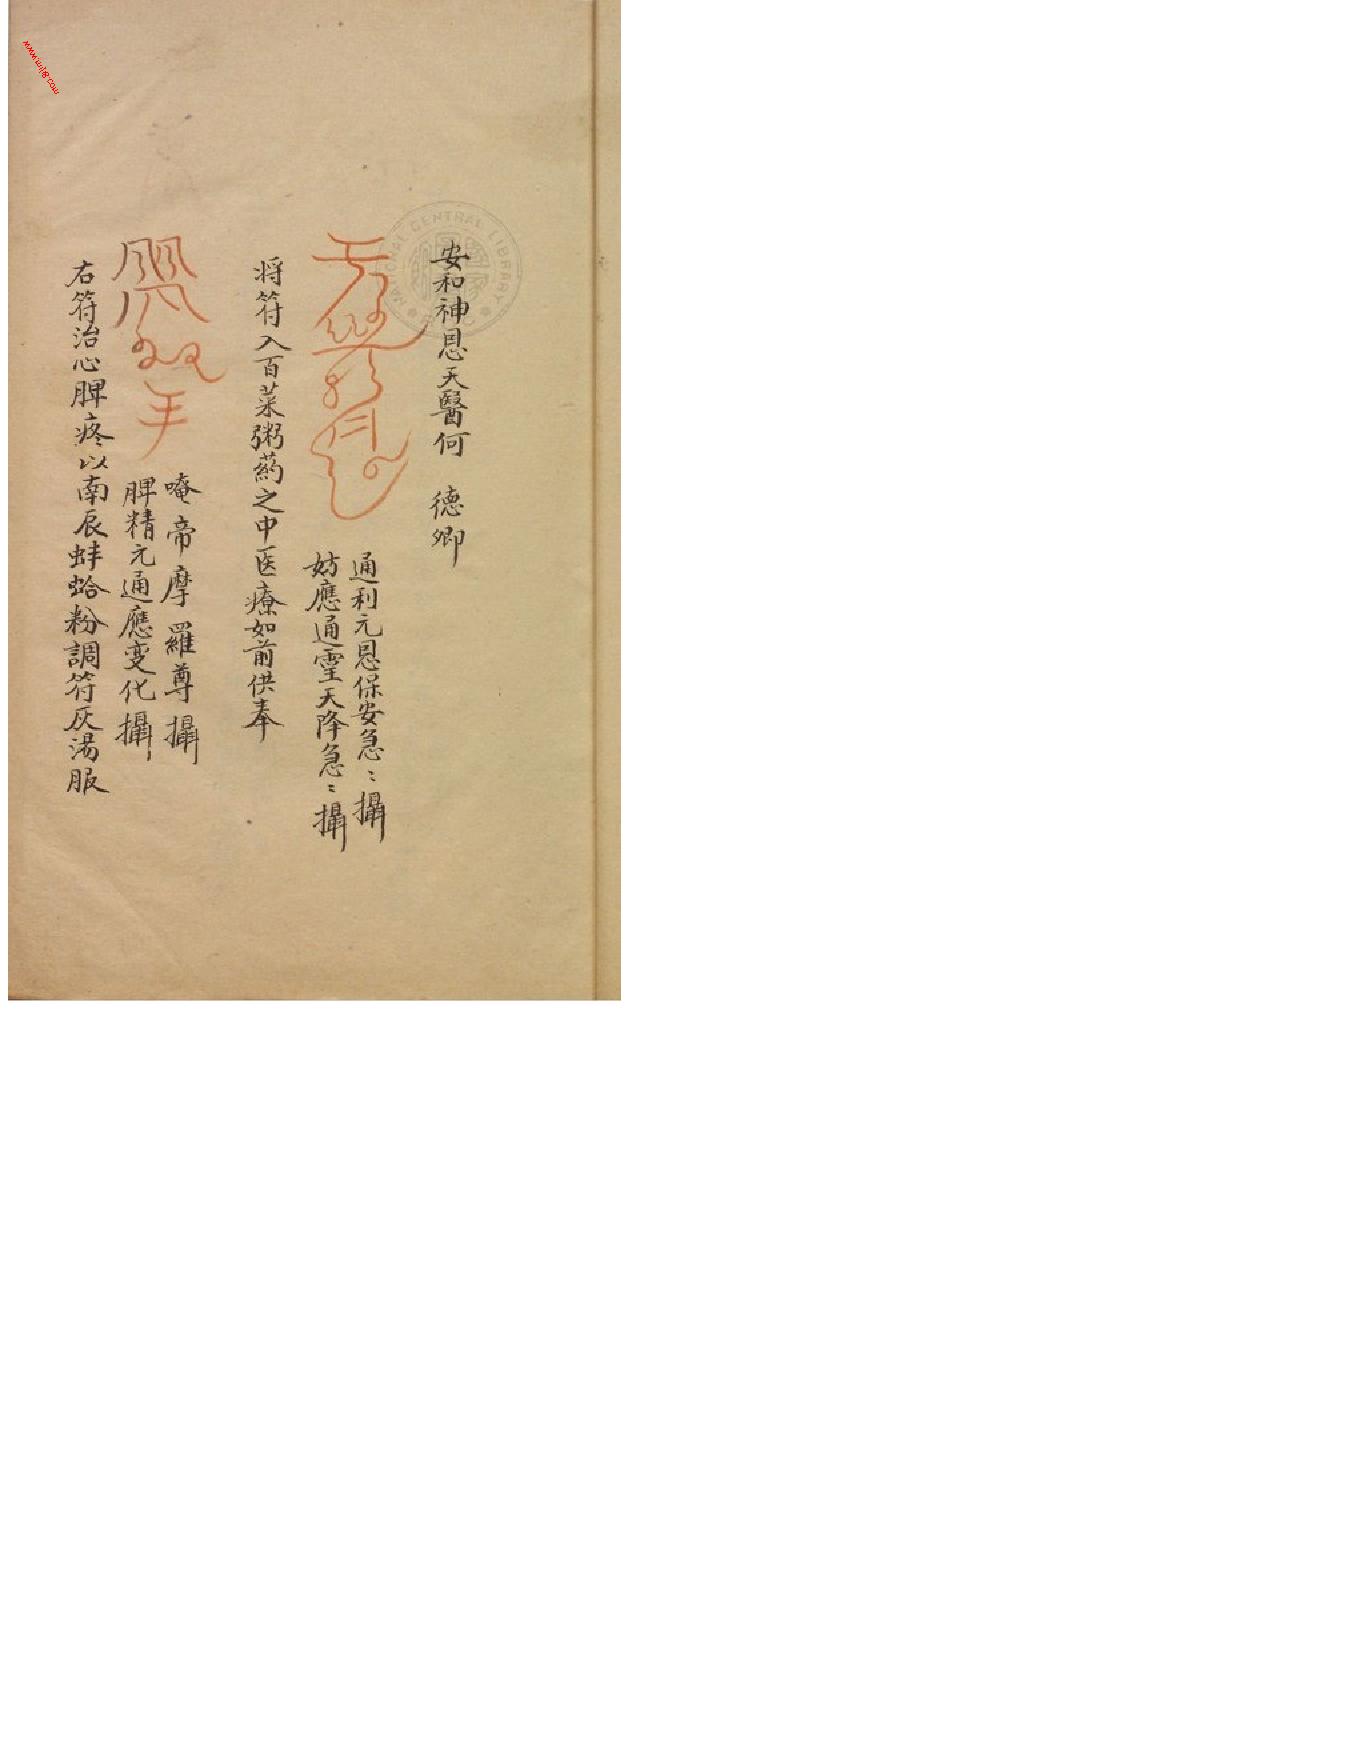 安和神恩天醫何　德卿
通利元恩保安急〻攝
妨應通霊天降急〻攝
将符入百菜粥药之中医療如前供奉
唵帝摩羅尊攝
脾精元通應变化攝
右符治心脾疼以南辰蚌蛤粉調符灰湯服
NATIONAL CENTRAL LIBRARY